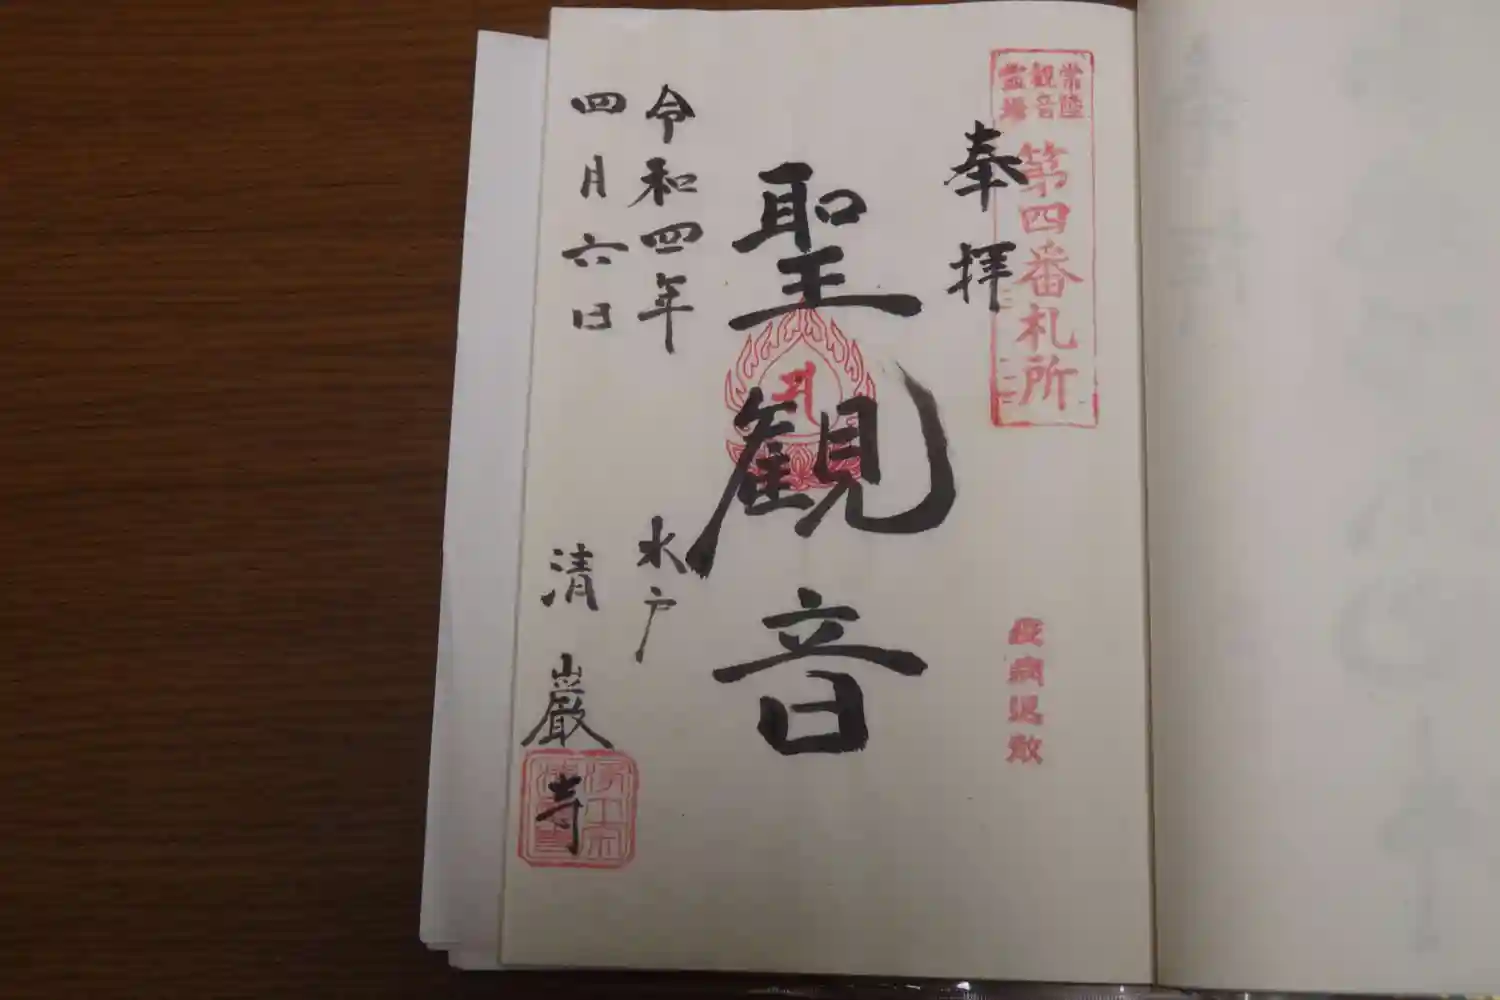 常陸
観音
霊場
第四番札所
奉拝
疫病退散
聖観音
令和四年
四月六日
水戸
清巖寺